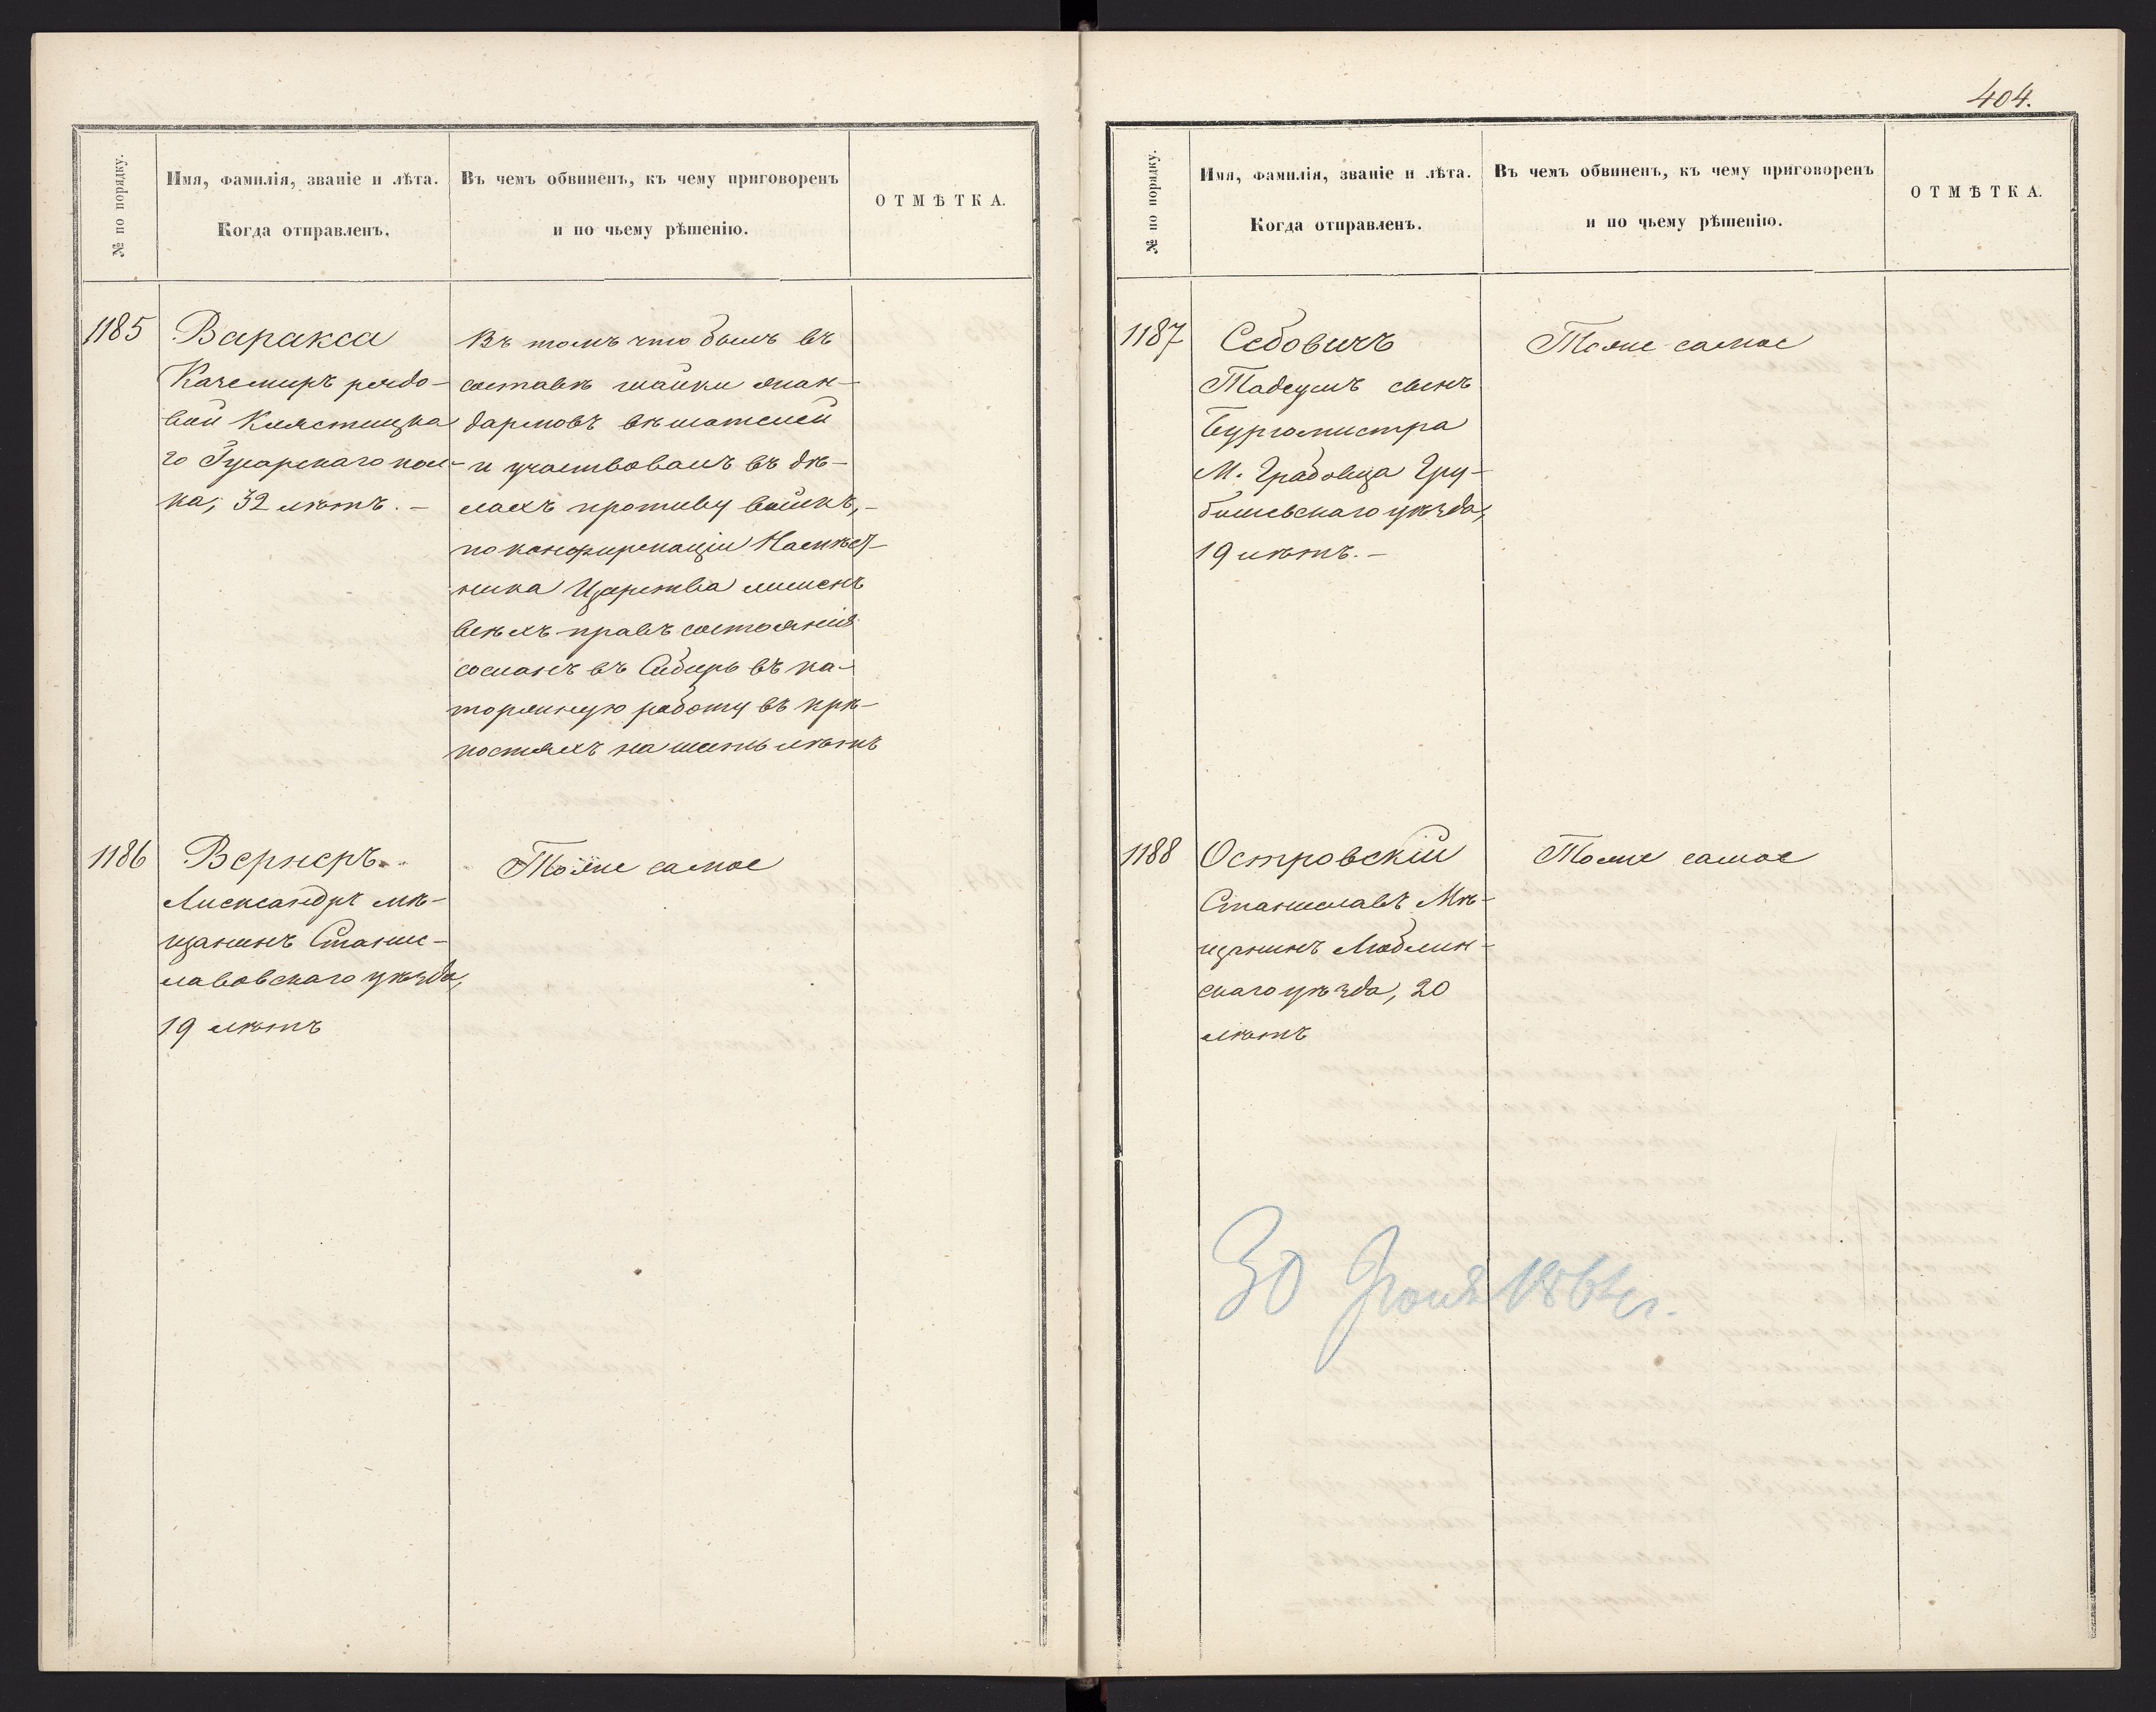 № по порядку.
Имя, фамилія, званіе и лѣта.
Когда отправленъ.
Въ чемъ обвиненъ, къ чему приговоренъ
и по чьему рѣшенію.
ОТМѢТКА.
1185
Варакса
Каземиръ рядо-
вой Клястицка
го Гусарскаго пол-
ка, 32 лѣтъ. –
Въ томъ что былъ въ
составѣ шайки жан-
дармовъ вѣшателей
и участвовалъ въ дѣ-
лахъ противу войскъ, –
по конфирмаціи Намѣст-
ника Царства лишенъ
всѣхъ правъ состоянія
сосланъ въ Сибирь въ ка-
торжную работу въ крѣ-
постяхъ на шесть лѣтъ
1186
Вернеръ
Александръ мѣ-
щанинъ Станис-
лавовскаго уѣзда,
19 лѣтъ
Тоже самое
404.
№ по порядку.
Имя, фамилія, званіе и лѣта.
Когда отправленъ.
Въ чемъ обвиненъ, къ чему приговоренъ
и по чьему рѣшенію.
ОТМѢТКА.
1187
Себовичъ
Тадеушъ сынъ
Бургомистра
М. Грабовца Гру-
бишевскаго уѣзда,
19 лѣтъ. –
Тоже самое
1188
Островскій
Станиславъ Мѣ-
щанинъ Люблин-
скаго уѣзда, 20
лѣтъ
Тоже самое
30 Іюня 1864 г.